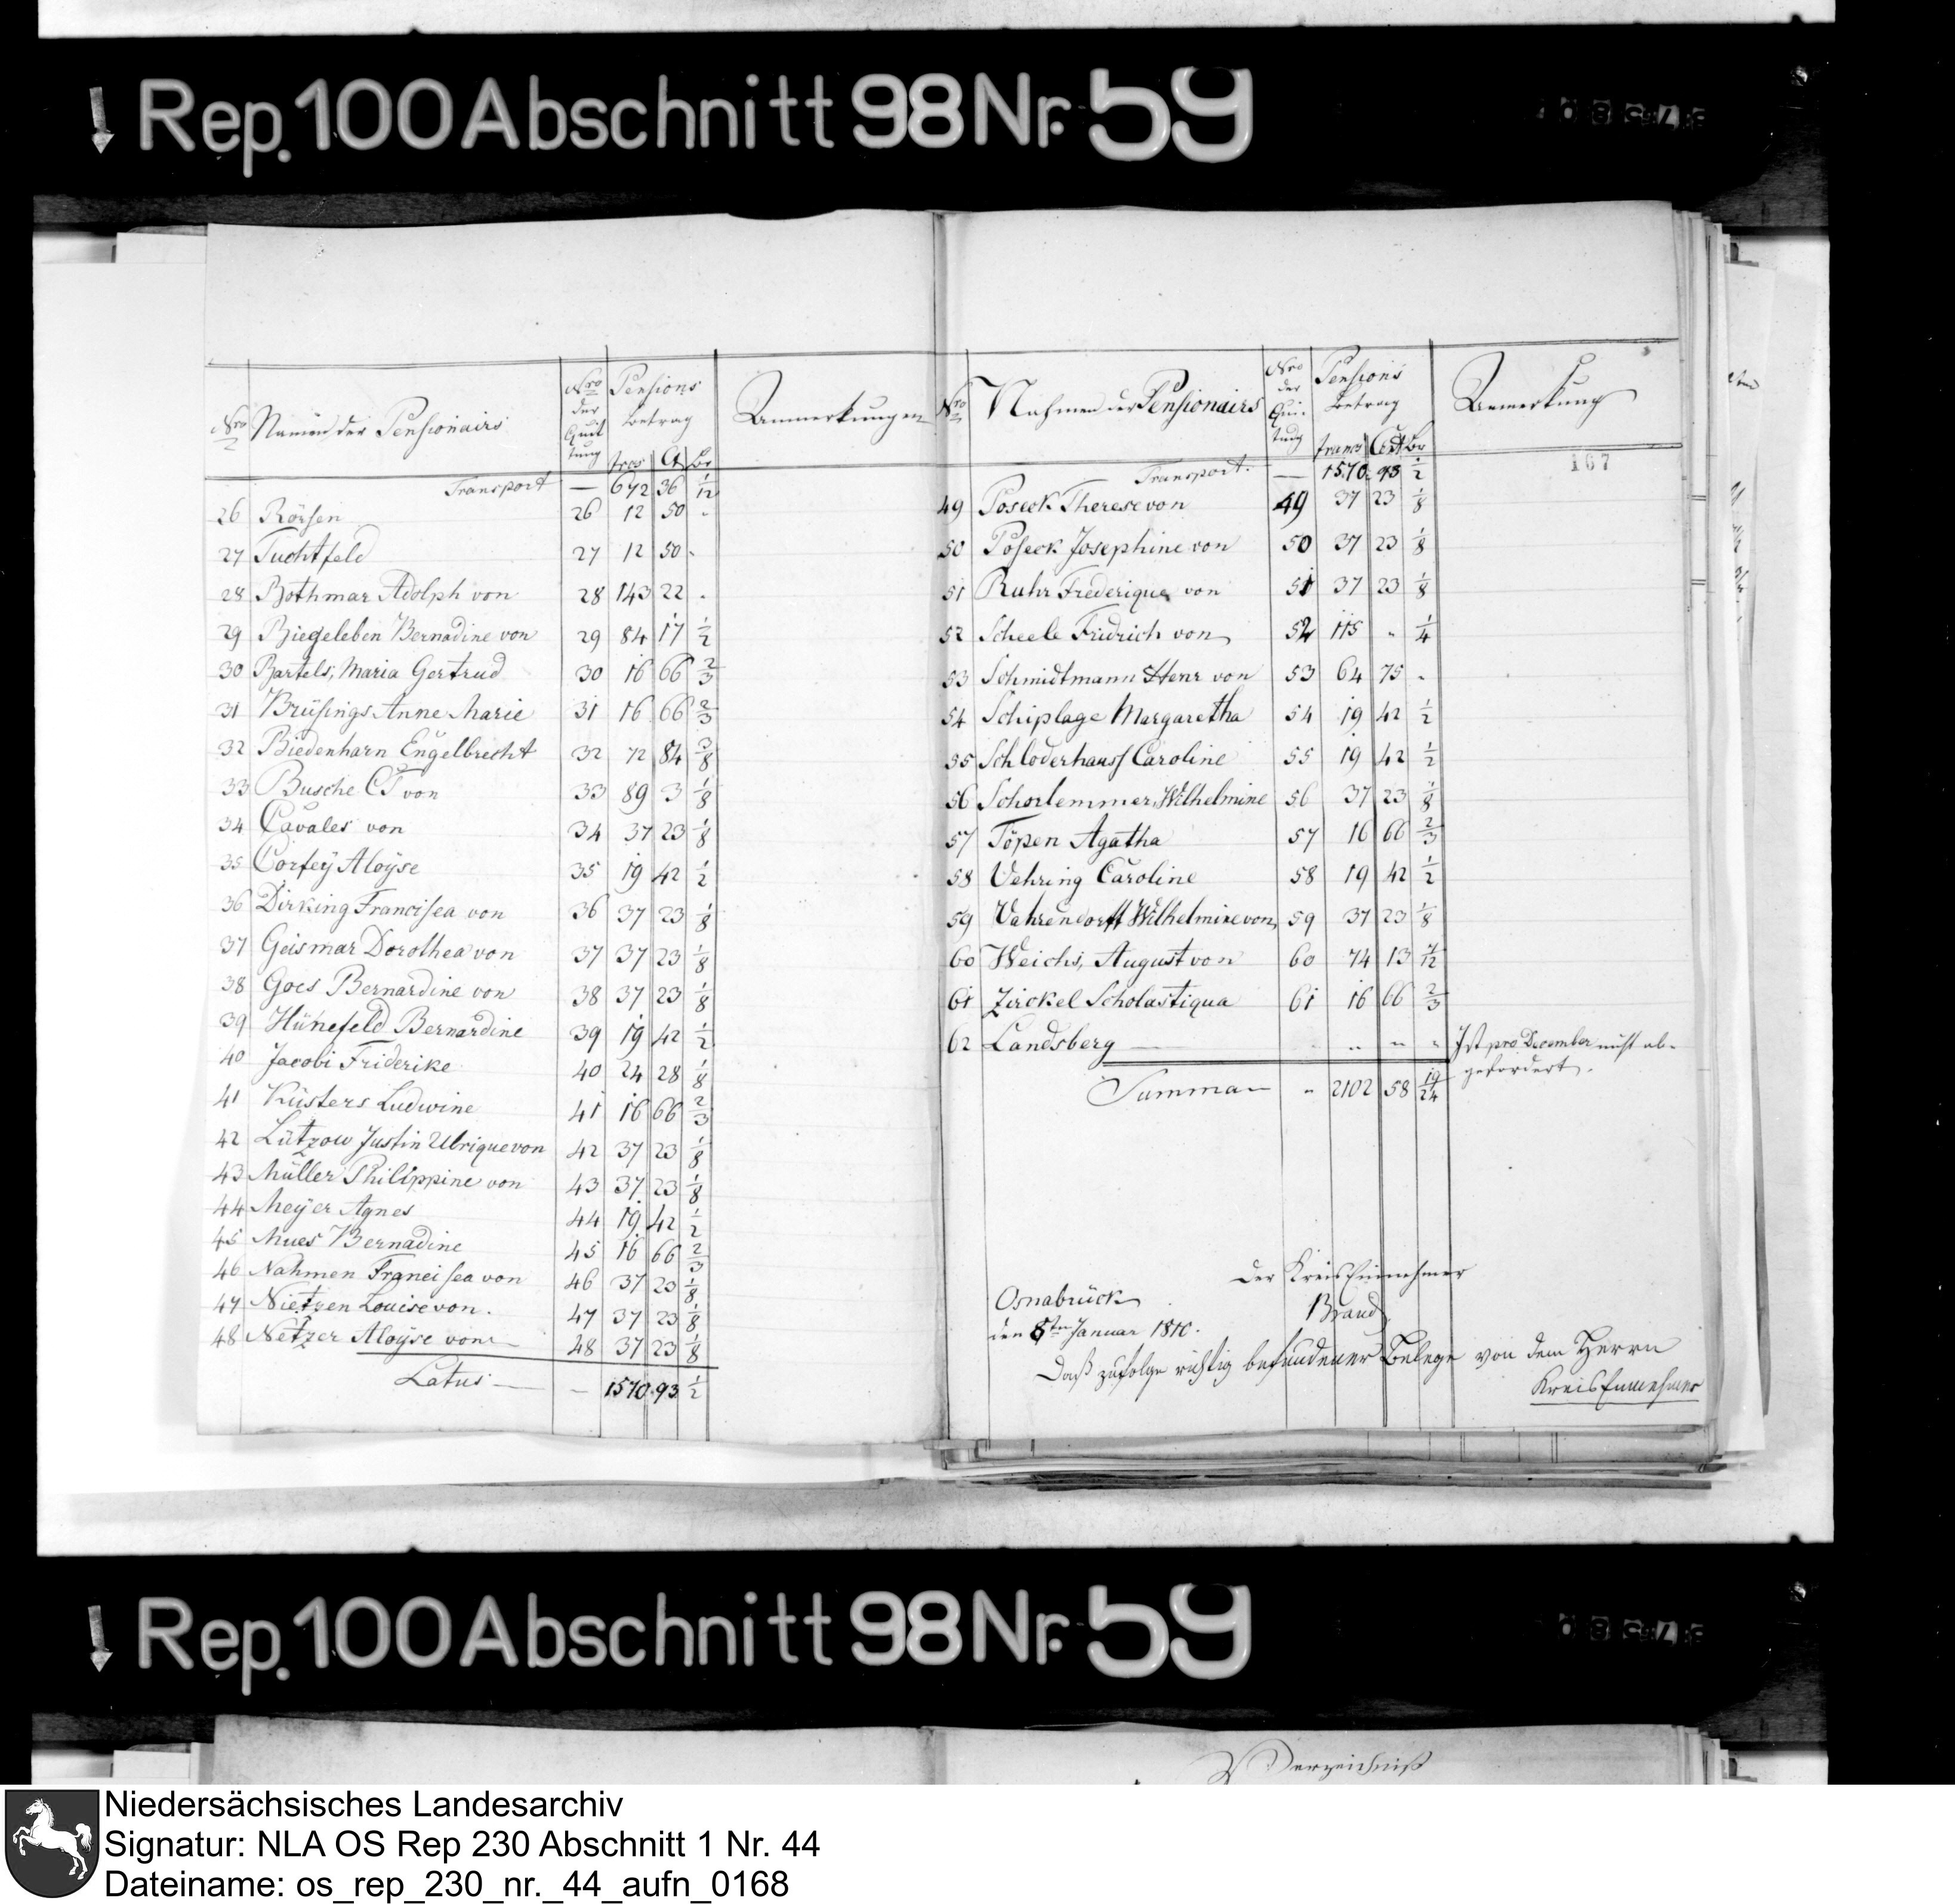 Rep. 100 Abschnitt 98 Nr. 59
Nro Namen der Pensionairs Nro der Quittung Pensions Betrag Anmerkungen
frcs Ct Br
Transport — 672 36 1/12
26 Rörsen 26 12 50 -
27 Tuchtfeld 27 12 50 -
28 Bothmar Adolph von 28 143 22 -
29 Biegeleben Bernadine von 29 84 17 1/2
30 Bartels, Maria Gertrud 30 16 66 2/3
31 Brüsings Anne Marie 31 16 66 2/3
32 Biedenharn Engelbrecht 32 72 84 3/8
33 Busche CT von 33 89 3 1/8
34 Cavales von 34 37 23 1/8
35 Corfey Aloÿse 35 19 42 1/2
36 Dirking Francisca von 36 37 23 1/8
37 Geismar Dorothea von 37 37 23 1/8
38 Goes Bernardine von 38 37 23 1/8
39 Hünefeld Bernardine 39 19 42 1/2
40 Jacobi Friderike 40 24 28 1/8
41 Küsters Ludwine 41 16 66 2/3
42 Lützow Justin Ulrique von 42 37 23 1/8
43 Müller Philippine von 43 37 23 1/8
44 Meÿer Agnes 44 19 42 1/2
45 Mues Bernadine 45 16 66 2/3
46 Nahmen Francisca von 46 37 23 1/8
47 Nietzen Louise von. 47 37 23 1/8
48 Netzer Aloÿse von 48 37 23 1/8
Latus — — 1570 93 1/2
Nro Nahmen der Pensionairs Nro der Quittung Pensions Betrag Anmerkung
francs Cent Br
167
Transport. — 1570 93 1/2
49 Poseck Therese von 49 37 23 1/8
50 Poseck Josephine von 50 37 23 1/8
51 Ruhr Frederique von 51 37 23 1/8
52 Scheele Fridrich von 52 115 - 1/4
53 Schmidtmann Henr von 53 64 75 -
54 Schiplage Margaretha 54 19 42 1/2
55 Schloderhauss Caroline 55 19 42 1/2
56 Schorlemmer, Wilhelmine 56 37 23 1/8
57 Töpen Agatha 57 16 66 2/3
58 Vehring Caroline 58 19 42 1/2
59 Vahrendorff Wilhelmine von 59 37 23 1/8
60 Weichs, August von 60 74 13 7/12
61 Zirckel Scholastiqua 61 16 66 2/3
62 Landsberg — - - - - Ist pro December nicht ab-
gefordert.
Summa - 2102 58 19/24
Der Kreis Einnehmer
Osnabrück Brand
den 8ten Januar 1810.
Daß zufolge richtig befundener Belege von dem Herrn
Kreis Einnehmer
Rep. 100 Abschnitt 98 Nr. 59
Verzeichniß
Niedersächsisches Landesarchiv
Signatur: NLA OS Rep 230 Abschnitt 1 Nr. 44
Dateiname: os_rep_230_nr._44_aufn_0168